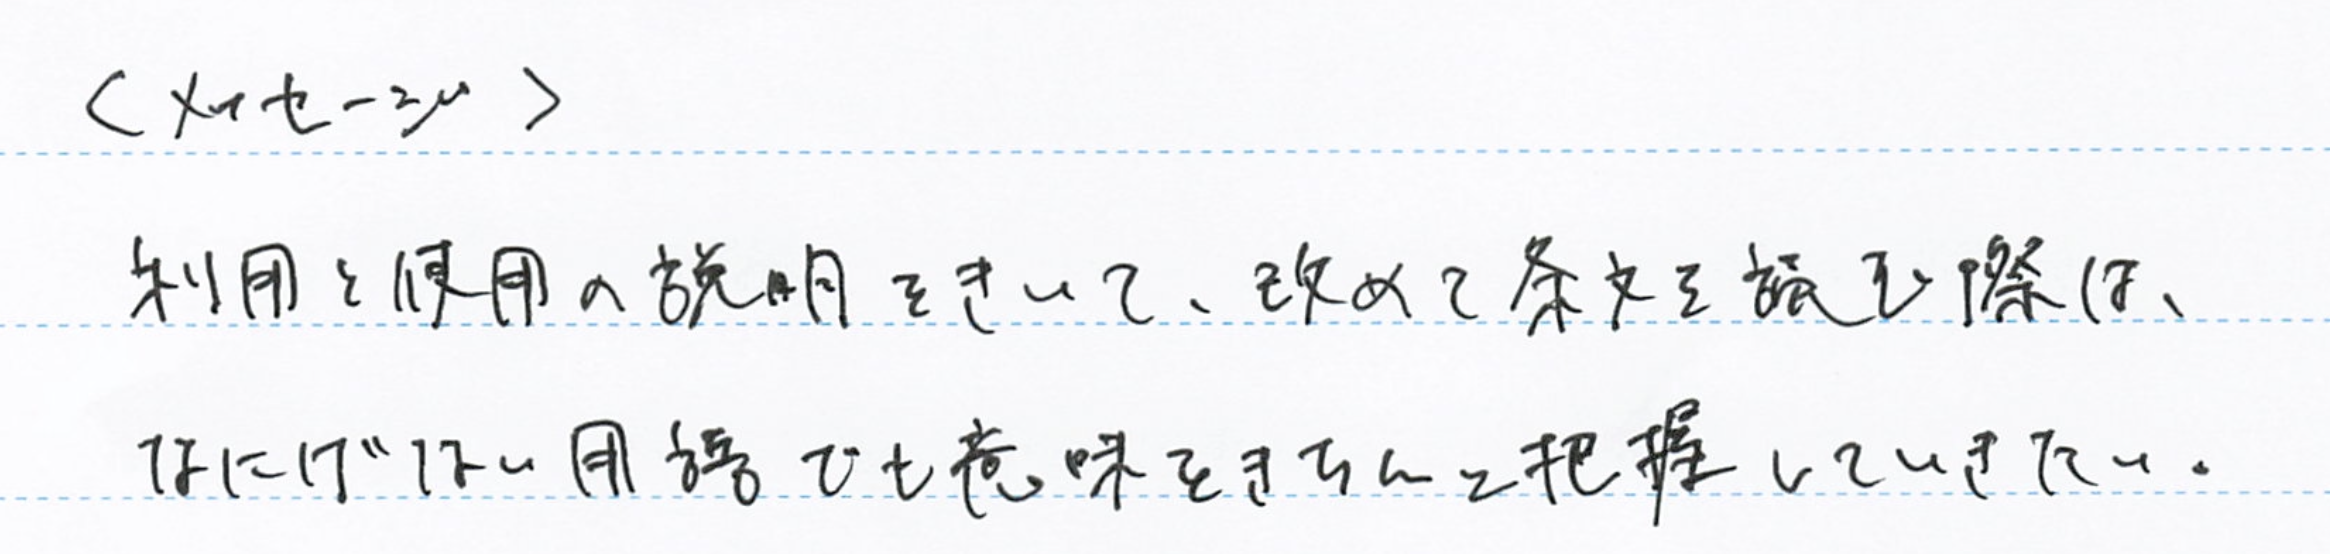 <メッセージ>
利用と使用の説明をきいて、改めて条文を読む際は、
なにげない用語でも意味をきちんと把握していきたい。